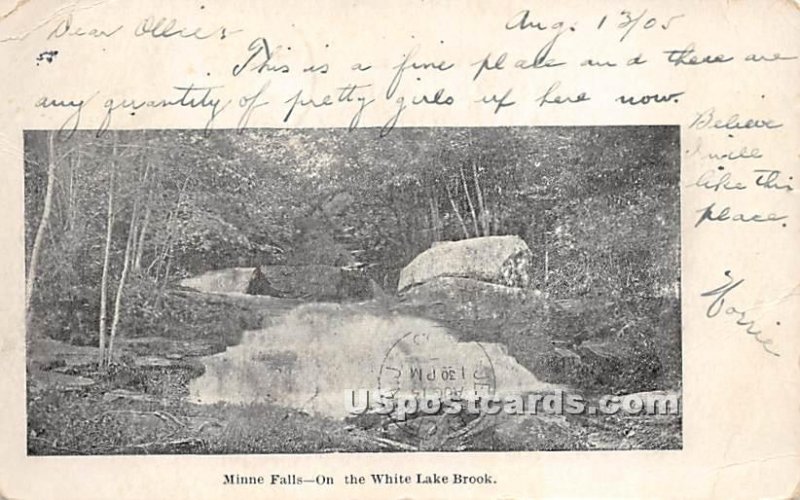 Dear Ollie:
Aug. 13/05
This is a fine place and there are
any quantity of pretty girls up here now.
Believe
I will
like this
place.
USpostcards.com
1 30 PM
AUG
Minne Falls—On the White Lake Brook.